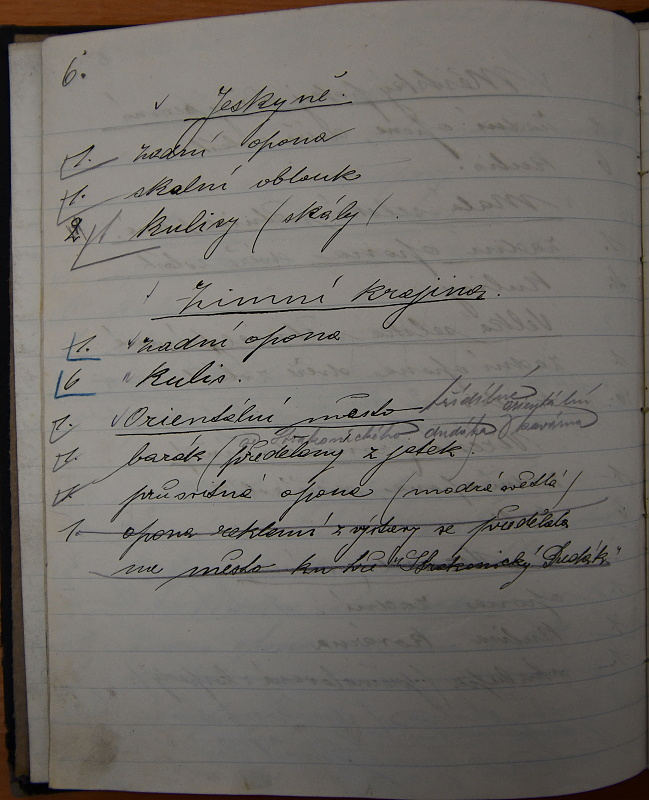 6.
Jeskyně.
1. zadní opona
1. skalní oblouk
2 kulisy (skály).
Zimní krajina.
1. zadní opona
6 kulis.
1. Orientální město orientální
ze Strakonického dudáka kavárna
1. barák (předělaný z jatek.
1. průsvitná opona (modrá světla)
1. opona reklamní z výstavy se předělala
na město ku hře "Strakonický Dudák"